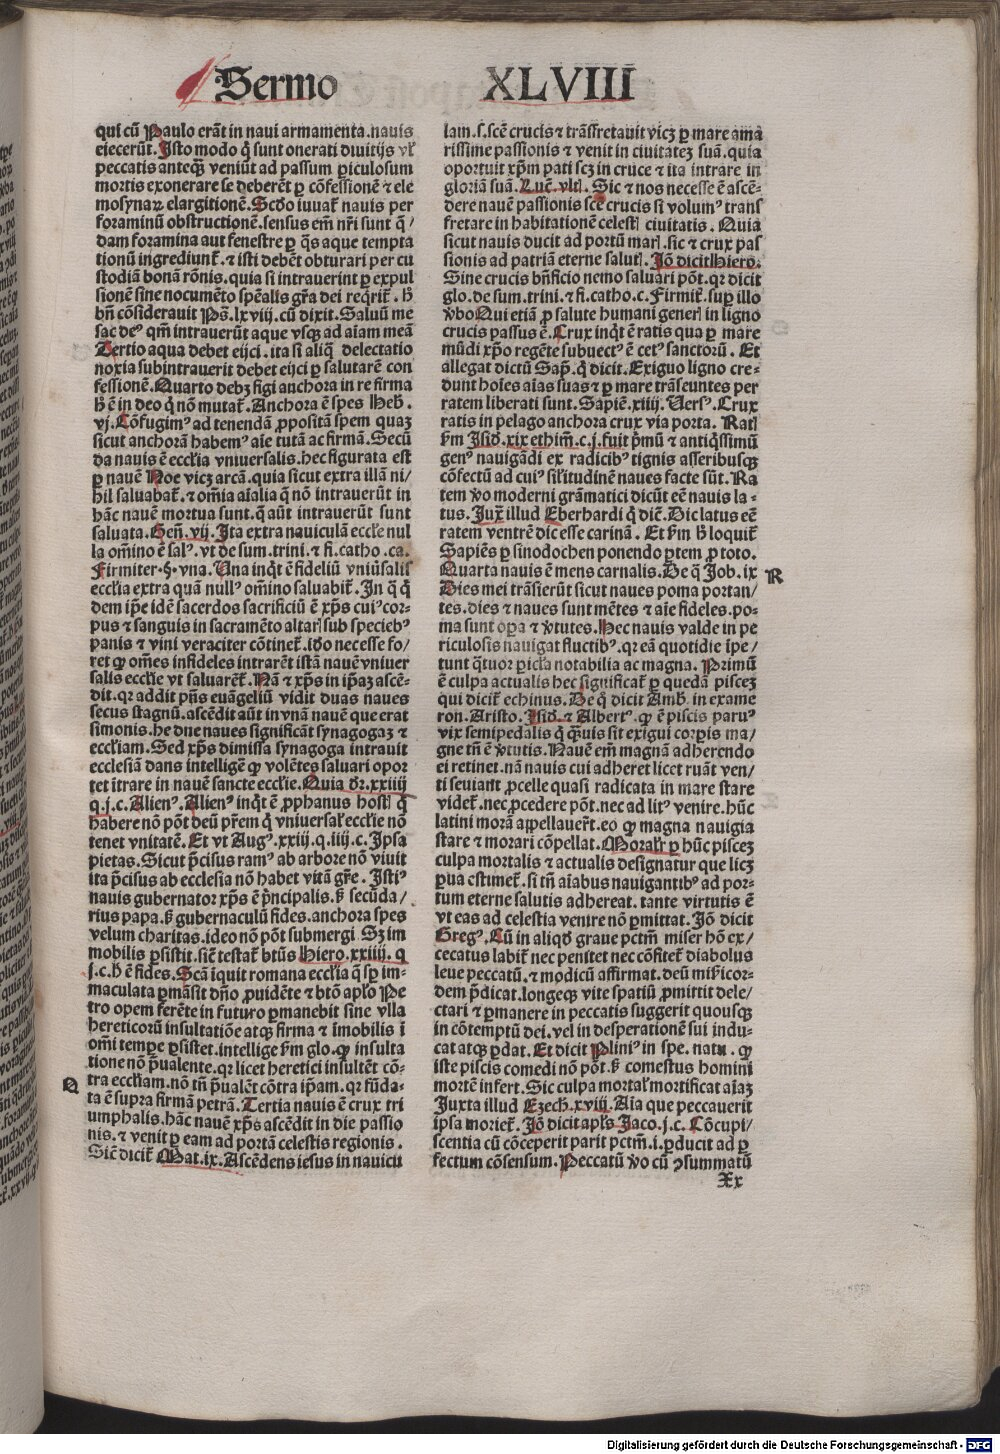 Sermo XLVIII
qui cū Paulo erāt in naui armamenta. nauis
eiecerūt. Isto modo q̄ sunt onerati diuitijs vl̓
peccatis anteqꝫ veniūt ad passum ꝑiculosum
mortis exonerare se deberēt ꝑ cōfessionē ⁊ ele
mosynaꝝ elargitionē. Scd̓o iuuat̄ nauis per
foraminū obstructionē. sensus em̄ nr̄i sunt q̄/
dam foramina aut fenestre ꝑ q̄s aque tempta
tionū ingrediunt̄. ⁊ isti debēt obturari per cu
stodiā bonā rōnis. quia si intrauerint ꝑ expul
sionē sine nocumēto sp̄ealis gr̄a dei req̄rit̄. h̄
bn̄ cōsiderauit Ps̄. lxviij. cū dixit. Saluū me
fac de⁹ qm̄ intrauerūt aque vsqꝫ ad aīam meā
Tertio aqua debet eijci. ita si aliq̄ delectatio
noxia subintrauerit debet eijci ꝑ salutarē con
fessionē. Quarto debꝫ figi anchora in re firma
h̄ ē in deo q̄ nō mutat̄. Anchora ē spes Heb̄.
vj. Cōfugim⁹ ad tenendā ꝓpositā spem quaꝫ
sicut anchorā habem⁹ aīe tutā ac firmā. Secū
da nauis ē eccl̓ia vniuersalis. hec figurata est
ꝑ nauē Noe vicꝫ arcā. quia sicut extra illā ni/
hil saluabat̄. ⁊ om̄ia aīalia q̄ nō intrauerūt in
hāc nauē mortua sunt. q̄ aūt intrauerūt sunt
saluata. Gen̄. vij. Ita extra nauiculā eccl̓ie nul
la om̄ino ē sal⁹. vt de sum. trini. ⁊ fi. catho. ca.
Firmiter. §. vna. Una inq̄t ē fideliū vniūsalis
eccl̓ia extra quā null⁹ om̄ino saluabit̄. In q̄ q̄
dem ip̄e idē sacerdos sacrificiū ē xp̄s cui⁹ cor-
pus ⁊ sanguis in sacramēto altarꝭ sub specieb⁹
panis ⁊ vini veraciter cōtinet̄. id̓o necesse fo/
ret ꝙ om̄es infideles intrarēt istā nauē vniuer
salis eccl̓ie vt saluarēt̄. Nā ⁊ xp̄s in ip̄aꝫ ascē-
dit. qꝛ addit pn̄s euāgeliū vidit duas naues
secus stagnū. ascēdit aūt in vnā nauē que erat
simonis. he due naues significāt synagogaꝫ ⁊
eccl̓iam. Sed xp̄s dimissa synagoga intrauit
ecclesiā dans intelligē ꝙ volētes saluari opor
tet ītrare in nauē sancte eccl̓ie. Quia dr̄. xxiiij
q. j. c. Alien⁹. Alien⁹ inq̄t ē ꝓphanus hostꝭ q̄
habere nō pōt deū pr̄em q̄ vniuersal̓ eccl̓ie nō
tenet vnitatē. Et vt Aug⁹. xxiij. q. iiij. c. Ipsa
pietas. Sicut p̄cisus ram⁹ ab arbore nō viuit
ita p̄cisus ab ecclesia nō habet vitā gr̄e. Isti⁹
nauis gubernator xp̄s ē p̄ncipalis. s̄ secūda/
rius papa. s̄ gubernaculū fides. anchora spes
velum charitas. ideo nō pōt submergi Sꝫ im
mobilis ꝑsistit. sic̄ testat̄ btūs Hiero. xxiiij. q
j. c. h̄ ē fides. Scā īquit romana eccl̓ia q̄ sꝑ im-
maculata ꝑmāsit dn̄o ꝓuidēte ⁊ btō apl̓o Pe
tro opem ferēte in futuro ꝑmanebit sine vlla
hereticorū insultatiōe atqꝫ firma ⁊ īmobilis ī
om̄i tempe ꝑsistet. intellige ẜm glo. ꝙ insulta
tione nō p̄ualente. qꝛ licet heretici insultēt cō-
tra eccl̓iam. nō tn̄ p̄ualēt cōtra ip̄am. qꝛ fūda-
ta ē supra firmā petrā. Tertia nauis ē crux tri
umphalis. hāc nauē xp̄s ascēdit in die passio
nis. ⁊ venit ꝑ eam ad portā celestis regionis.
Sic̄ dicit̄ Mat. ix. Ascēdens iesus in nauicu
Q
lam. s. scē crucis ⁊ trāsfretauit vicꝫ ꝑ mare ama
rissime passionis ⁊ venit in ciuitateꝫ suā. quia
oportuit xp̄m pati scꝫ in cruce ⁊ ita intrare in
gloriā suā. Luc̄. vltꝭ. Sic ⁊ nos necesse ē ascē-
dere nauē passionis scē crucis si volum⁹ trans
fretare in habitationē celestꝭ ciuitatis. Quia
sicut nauis ducit ad portū marꝭ. sic ⁊ crux pas
sionis ad patriā eterne salutꝭ. Iō dicit Hiero.
Sine crucis bn̄ficio nemo saluari pōt. qꝛ dicit
glo. de sum. trini. ⁊ fi. catho. c. Firmit̄. suꝑ illo
v̓bo Qui etiā ꝓ salute humani generꝭ in ligno
crucis passus ē. Crux inq̄t ē ratis qua ꝑ mare
mūdi xp̄o regēte subuect⁹ ē cet⁹ sanctorū. Et
allegat dictū Sap̄. q̄ dicit. Exiguo ligno cre-
dunt hoīes aīas suas ⁊ ꝑ mare trāseuntes per
ratem liberati sunt. Sapiē. xiiij. Uers⁹. Crux
ratis in pelago anchora crux via porta. Ratꝭ
ẜm Isid̓. xix ethim̄. c. j. fuit p̄mū ⁊ antiq̄ssimū
gen⁹ nauigādi ex radicib⁹ tignis asseribusqꝫ
cōfectū ad cui⁹ sil̓itudinē naues facte sūt. Ra
tem v̓o moderni grāmatici dicūt eē nauis la-
tus. Iux̄ illud Eberhardi q̄ dic̄. Dic latus eē
ratem ventrē dic esse carinā. Et ẜm h̄ loquit̄
Sapiēs ꝑ sinodochen ponendo ꝑtem ꝓ toto.
Quarta nauis ē mens carnalis. De q̄ Job. ix
Dies mei trāsierūt sicut naues poma portan/
tes. dies ⁊ naues sunt mētes ⁊ aīe fideles. po-
ma sunt oꝑa ⁊ v̓tutes. Hec nauis valde in pe
riculosis nauigat fluctib⁹. qꝛ eā quotidie īpe/
tunt q̄tuor ꝑicl̓a notabilia ac magna. Primū
ē culpa actualis hec significat̄ ꝑ quedā pisceꝫ
qui dicit̄ echinus. De q̄ dicit Amb̄. in exame
ron. Aristo. Isid̓. ⁊ Albert⁹. ꝙ ē piscis paru⁹
vix semipedalis q̄ q̄muis sit exigui corꝑis ma/
gne tn̄ ē v̓tutis. Nauē em̄ magnā adherendo
ei retinet. nā nauis cui adheret licet ruāt ven/
ti seuiant ꝓcelle quasi radicata in mare stare
videt̄. nec ꝓcedere pōt. nec ad lit⁹ venire. hūc
latini morā appellauer̄t. eo ꝙ magna nauigia
stare ⁊ morari cōpellat. Moralr̄ ꝑ hūc pisceꝫ
culpa mortalis ⁊ actualis designatur que licꝫ
ꝑua estimet̄. si tn̄ aīabus nauigantib⁹ ad por-
tum eterne salutis adhereat. tante virtutis ē
vt eas ad celestia venire nō ꝑmittat. Iō dicit
Greg⁹. Cū in aliqd̓ graue pctm̄ miser hō ex/
cecatus labit̄ nec penitet nec cōfitet̄ diabolus
leue peccatū. ⁊ modicū affirmat. deū mis̓icor-
dem p̄dicat. longeqꝫ vite spatiū ꝓmittit dele/
ctari ⁊ ꝑmanere in peccatis suggerit quousqꝫ
in cōtemptū dei. vel in desperationē sui indu-
cat atqꝫ ꝑdat. Et dicit Plini⁹ in spe. natu. ꝙ
iste piscis comedi nō pōt. s̄ comestus homini
mortē infert. Sic culpa mortal̓ mortificat aīaꝫ
Juxta illud Ezech̓. xviij. Aīa que peccauerit
ipsa moriet̄. Iō dicit apl̓s Jaco. j. c. Cōcupi/
scentia cū cōceperit parit pctm̄. i. ꝑducit ad ꝑ
fectum cōsensum. Peccatū v̓o cū ꝯsummatū
R
Xx
Digitalisierung gefördert durch die Deutsche Forschungsgemeinschaft - DFG